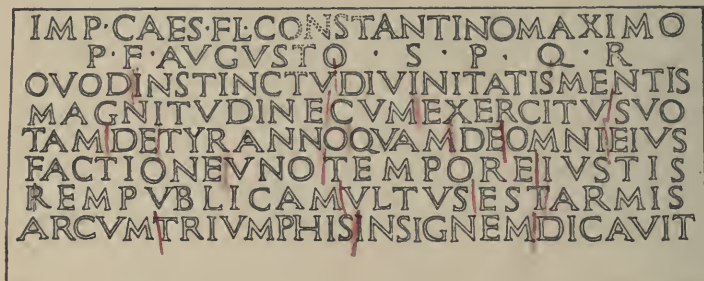 IMP·CAES·FL·CONSTANTINOMAXIMO
P·F·AVGVSTO·S·P·Q·R
OVODINSTINCTVDIVINITATISMENTIS
MAGNITVDINECVMEXERCITVSVO
TAMDETYRANNOQVAMDEOMNIEIVS
FACTIONEVNOTEMPOREIVSTIS
REMPVBLICAMVLTVSESTARMIS
ARCVMTRIVMPHISINSIGNEMDICAVIT